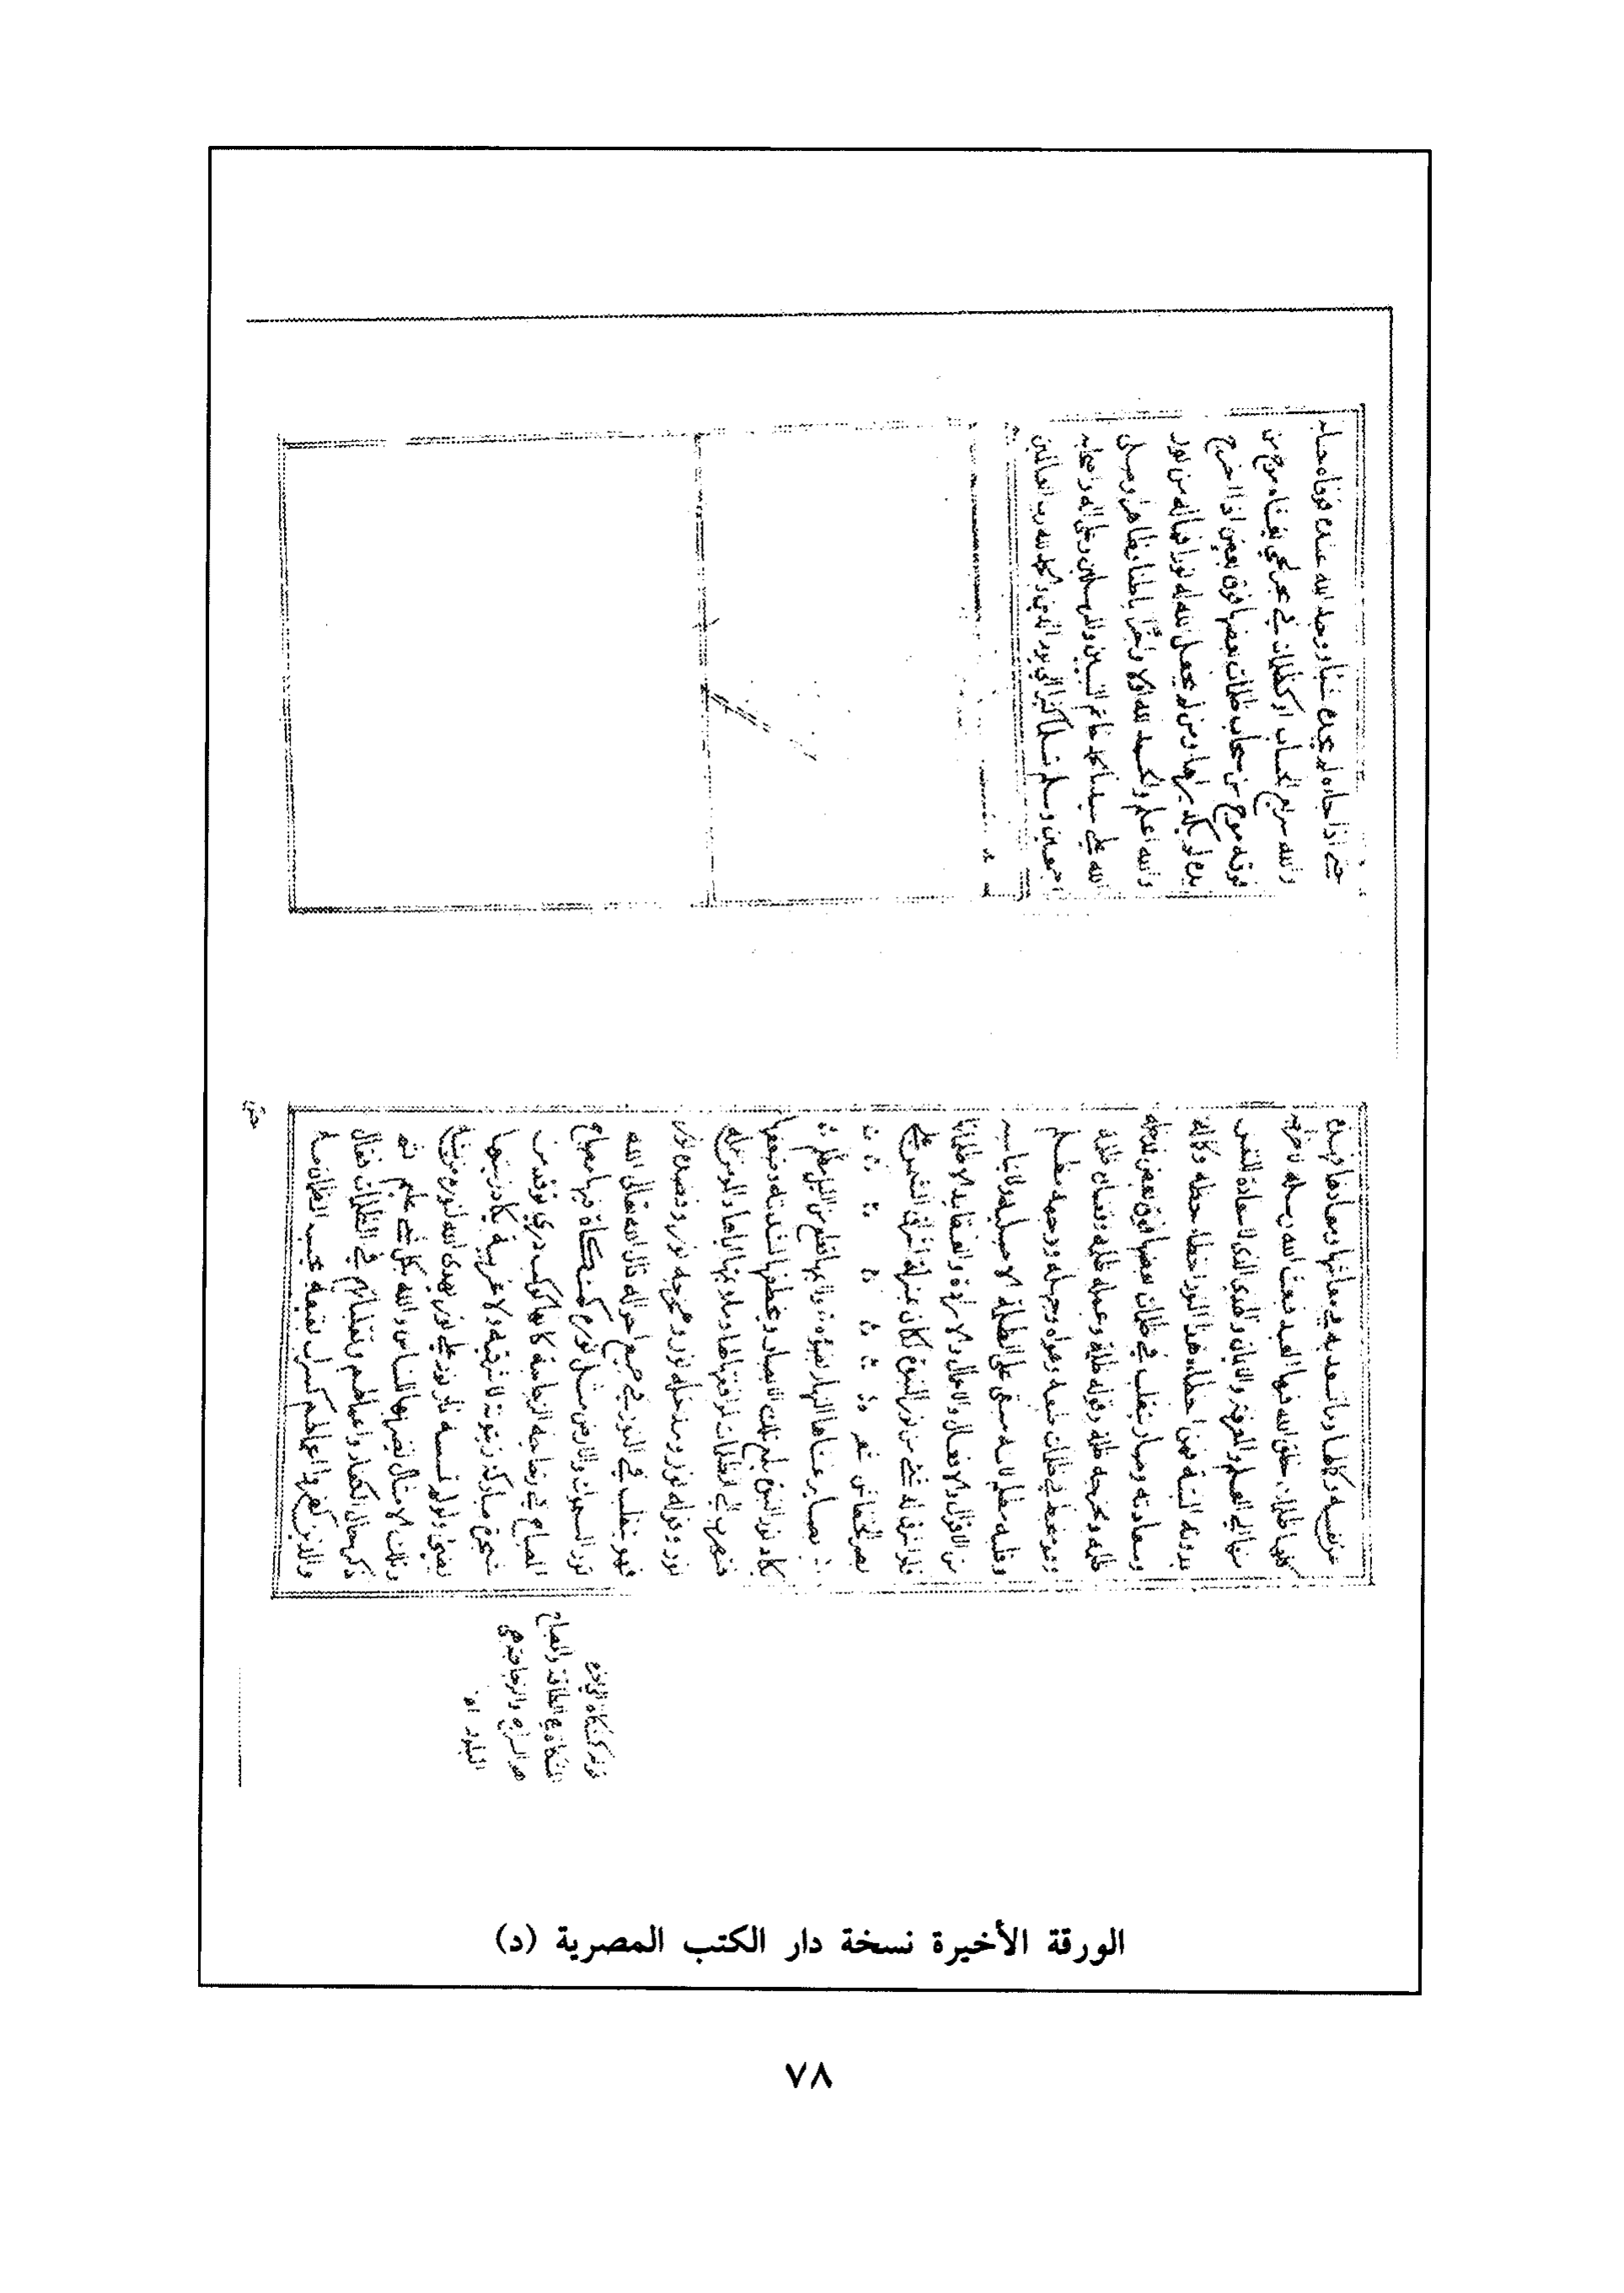 عن نفسه وكمالها وما تسعد به في معاشها ومعادها فهذه
كلها ظلمات خلق الله فيها العبد فبعث الله رسله لاخراجه
منها الى العلم والمعرفة والايمان والهدى الذي لا سعادة للنفس
بدونه البتة فمن اخطاه هذا النور اخطاه حظه وكماله
وسعادته وصار يتقلب في ظلمات بعضها فوق بعض فمدخله
ظلمة ومخرجه ظلمة وقوله ظلمة وعمله ظلمة وقصده ظلمة
وهو متخبط في ظلمات طبعه وهواه وجهله ووجهه مظلم
وقلبه مظلم لانه مبقى على الظلمة الاصلية ولا يناسبه
من الاقوال والاعمال والعقايد الا ظلماتها
فلو اشرق له شيء من نور النبوة لكان بمنزلة اشراق الشمس على
بصر الخفاش شعر
بصاير غشاها النهار بضوئه من الليل مظلم
يكاد نور النبوة تلك الابصار ويخطفها لشدته وضعفها
فتهرب الى الظلمات لموافقتها لها والمومن عمله
نور وقوله نور ومدخله نور ومخرجه نور وقصده نور
فهو يتقلب في النور في جميع احواله قال الله تعالى الله
نور السموات والارض مثل نوره كمشكاة فيها مصباح
المصباح في زجاجة الزجاجة كانها كوكب دري توقد من
شجرة مباركة زيتونة لا شرقية ولا غربية يكاد زيتها
يضيئ ولو لم تمسسه نار نور على نور يهدي الله لنوره من يشاء
وتلك الامثال نضربها للناس والله بكل شيء عليم ثم
ذكر حال الكفار واعمالهم وتقلباتهم في الظلمات فقال
والذين كفروا اعمالهم كسراب بقيعة يحسبه الظمان ماء
حتى
قوله كمشكاة
المشكاة هي الطاقة والمصباح
هو السراج والزجاجة هي
البلور اه
حتى اذا جاءه لم يجده شيئا ووجد الله عنده فوفاه حسابه
والله سريع الحساب او كظلمات في بحر لجي يغشاه موج من
فوقه موج من سحاب ظلمات بعضها فوق بعض اذا اخرج
يده لم يكد يراها ومن لم يجعل الله له نورا فما له من نور
والله اعلم والحمد لله اولا واخرا باطنا وظاهرا وصلى
الله على سيدنا محمد خاتم النبيين والمرسلين وعلى اله واصحابه
اجمعين وسلم تسليما كثيرا الى يوم الدين والحمد لله رب العالمين
الورقة الأخيرة نسخة دار الكتب المصرية (د)
٧٨